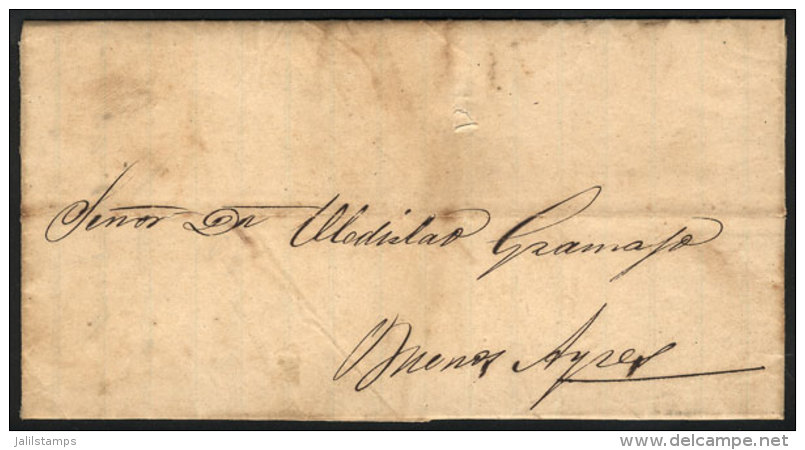 Señor Dn Uladislao Gramajo
Buenos Ayres
jalilstamps
delcampe.net